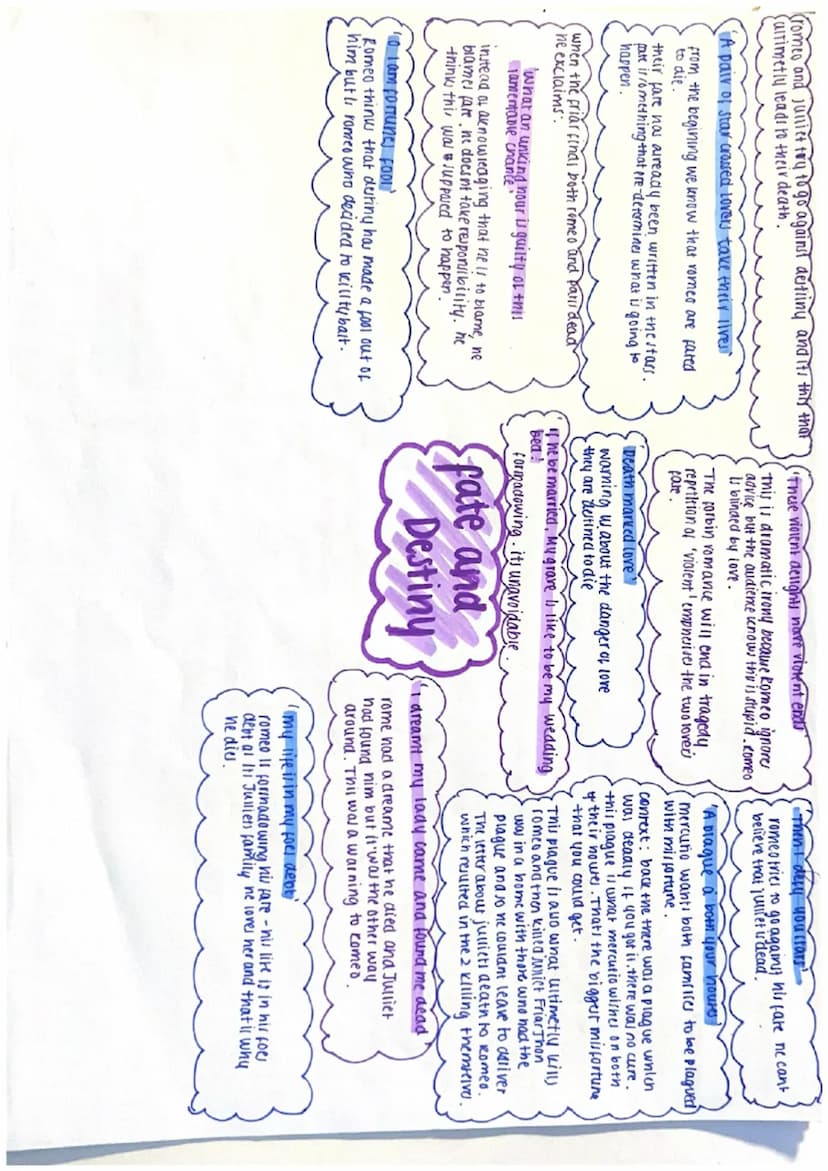 romeo and julliet try to go against destiny and its this that
ultimetly lead to their death.
'A pair of star crossed lovers take their lives'
from the begining we know that romeo are fated
to die.
their fate has already been written in the stars.
fate is something that pre-determines what is going to
happen.
when the friar finds both romeo and paris dead
he exclaims:
'What an unkind hour is guilty of this
lamentable chance'
instead of aknowledging that he is to blame, he
blames fate. he doesnt take responsibility. he
thinks this was supposed to happen.
'O I am fortunes fool'
Romeo thinks that destiny has made a fool out of
him but is romeo who decided to kill tybalt.
'These violent delights have violent ends'
This is dramatic irony because Romeo ignores
advice but the audience know this is stupid. romeo
is blinded by love.
The forbin romance will end in tragedy
repetition of 'violent' emphasises the two lovers
fate.
'Death marked love'
warning us about the danger of love
they are destined to die
'If he be married, My grave is like to be my wedding
bed.'
formadowing. its unavoidable.
fate and
Destiny
'Then I defy you stars'
romeo tries to go against his fate he cant
believe that julliet is dead.
'A plague a both your houses'
mercutio wants both families to be plagued
with misfortune.
context: back the there was a plague which
was deadly if you got it, there was no cure.
this plague is what mercutio wishes on both
of their houses. That's the biggest misfortune
that you could get.
This plague is also what ultimetly kills
romeo and they killed juliet Friar Jhon
was in a home with those who had the
plague and so he couldnt leave to deliver
The letter about julliets death to Romeo.
which resulted in the 2 killing themselves.
'I dreamt my lady came and found me dead'
rome had a dreame that he died and Julliet
had found him but it was the other way
around. This was a warning to romeo.
'my life is in my foes debt'
romeo is formadowing his fate - his life is in his foes
debt as his Julliets family he loves her and that is why
he dies.